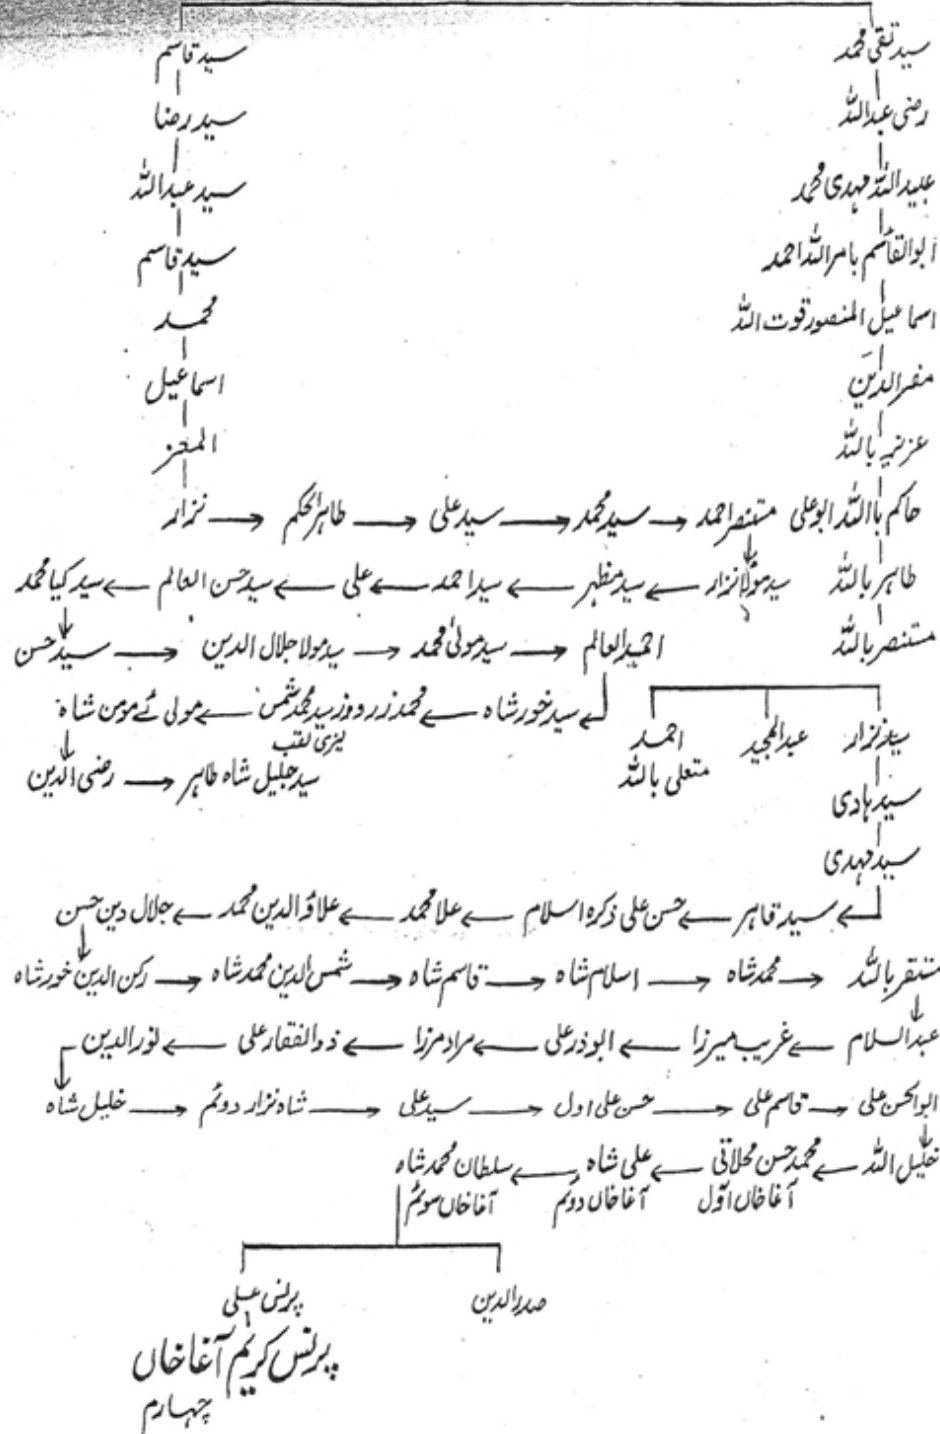 سید تقی محمد
سید قاسم
رضی عبداللہ
سید رضا
عبید اللہ مہدی محمد
سید عبداللہ
ابو القاسم بامر اللہ احمد
سید قاسم
اسماعیل المنصور قوت اللہ
محمد
معز الدین
اسماعیل
عزیز باللہ
المعز
حاکم باللہ ابو علی مستنصر احمد → سید محمد → سید علی → طاہر الحکم → نزار
طاہر باللہ سید مولانا نزار ← سید مظہر ← سید احمد ← علی ← سید حسن العالم ← سید کیا محمد
مستنصر باللہ احمید العالم → سید مولیٰ محمد → سید مولا جلال الدین → سید حسن
سید خور شاہ ← محمد زر دوز سید محمد شمس ← مولیٰ ئے مومن شاہ
لقب
سید نزار عبدالمجید احمد
متعلی باللہ
سید جلیل شاہ طاہر → رضی الدین
سید ہادی
سید مہدی
سید قاہر ← حسن علی ذکرہ اسلام ← علا محمد ← علاؤ الدین محمد ← جلال دین حسن
باللہ → محمد شاہ → اسلام شاہ → قاسم شاہ → شمس الدین محمد شاہ → رکن الدین خور شاہ
عبدالسلام ← غریب میرزا ← ابوذر علی ← مراد مرزا ← ذوالفقار علی ← نور الدین
ابوالحسن علی → قاسم علی → حسن علی اول → سید علی → شاہ نزار دوئم → خلیل شاہ
خلیل اللہ ← محمد حسن محلاتی ← علی شاہ ← سلطان محمد شاہ
آغا خاں اوّل آغا خاں دوئم آغا خاں سوئم
صدر الدین پرنس علی
پرنس کریم آغا خاں
چہارم